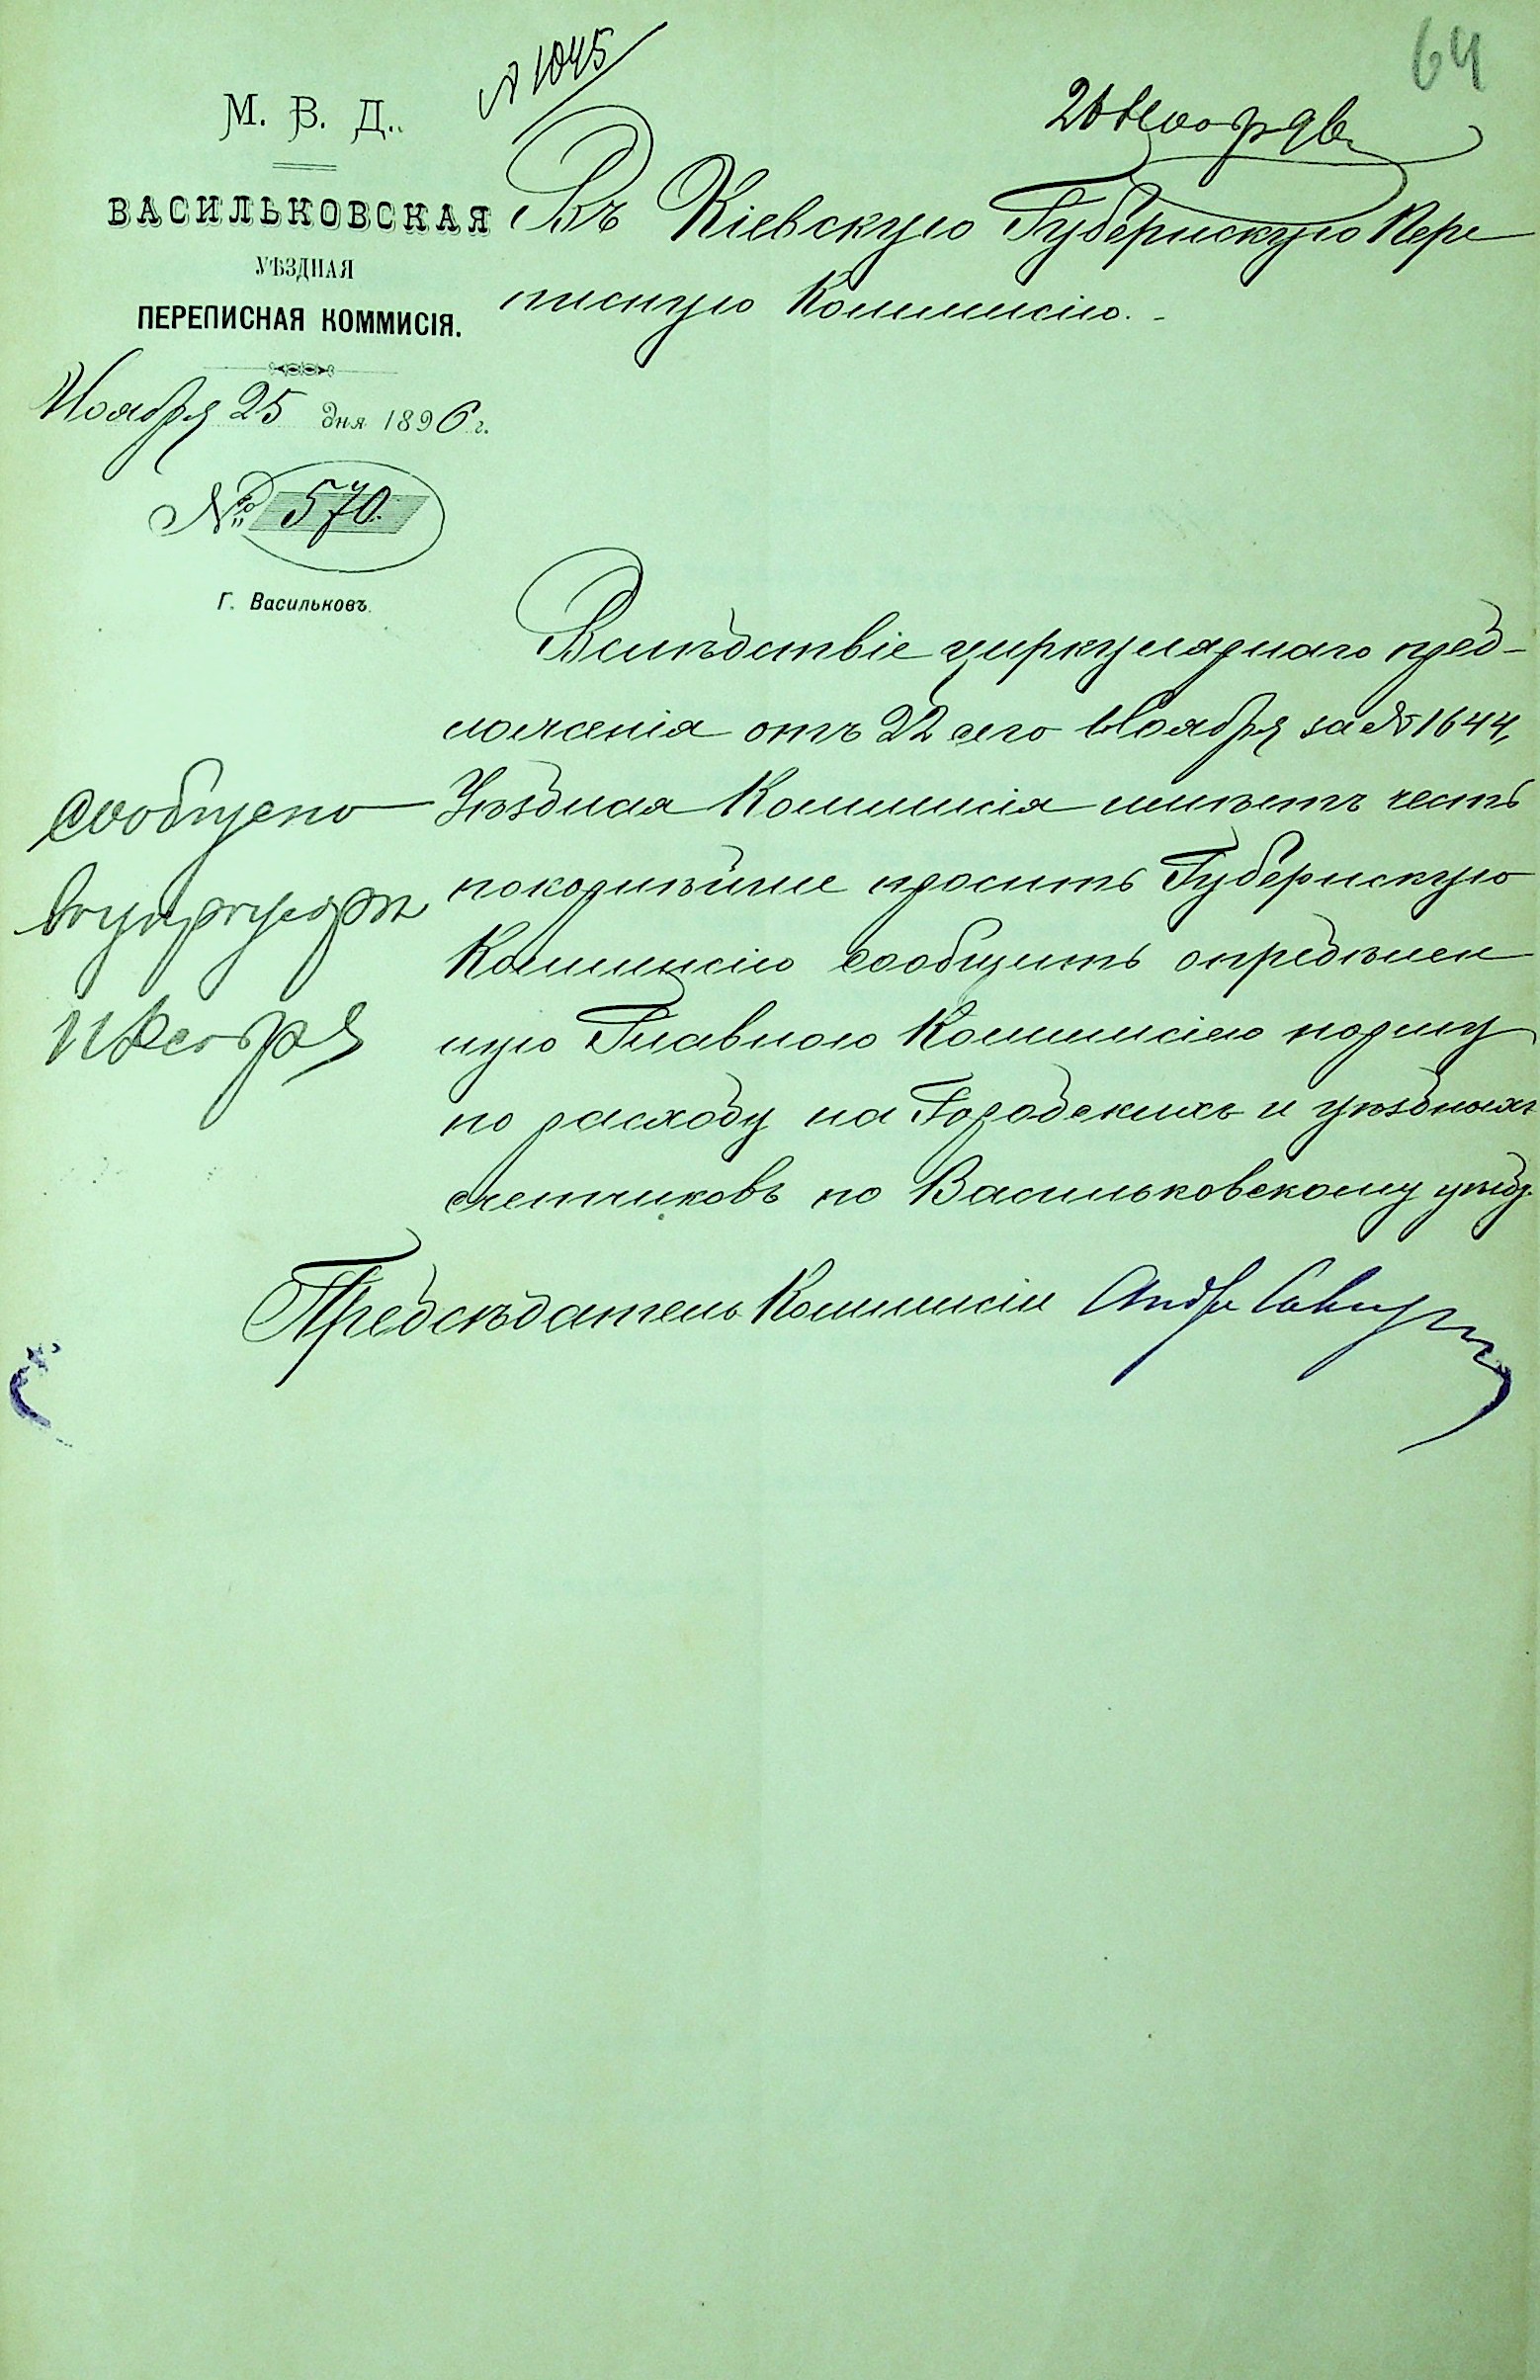 64
№ 1045
26 Ноября 96
М. В. Д.
ВАСИЛЬКОВСКАЯ
УѢЗДНАЯ
ПЕРЕПИСНАЯ КОММИСІЯ.
Ноября 25 дня 1896 г.
№ 570.
Г. Васильковъ.
Въ Кіевскую Губернскую Пере
писную Коммисію.
Вслѣдствіе циркулярнаго пред-
ложенія отъ 22 сего Ноября за № 1644,
Уѣздная Коммисія имѣетъ честь
покорнѣйше просить Губернскую
Коммисію сообщить опредѣлен
ную Главною Коммисіею норму
по расходу на Городскихъ и уѣздныхъ
счетчиковъ по Васильковскому уѣзд.
Предсѣдатель Коммисіи
сообщено